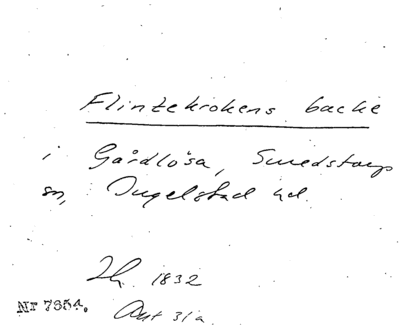 Flintekrokens backe
i Gårdlösa, Smedstorps
sn, Ingelstad hd.
Ih. 1832
Nr 7354. Ant 31a